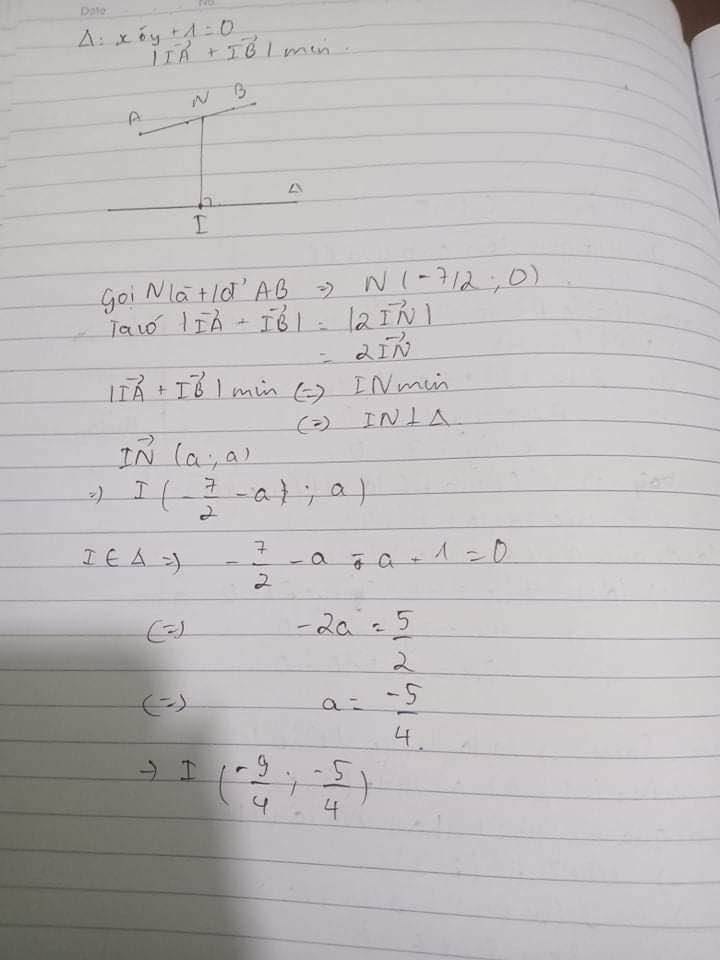 Date No
Δ: x - y + 1 = 0
|IA→ + IB→| min.
A N B
Δ
I
Gọi N là t/đ' AB => N (-7/2; 0)
Ta có |IA→ + IB→| = |2IN→|
= 2IN→
|IA→ + IB→| min (=) IN min
(=) IN ⊥ Δ.
IN→ (a; a)
=) I (-7/2 - a; a)
I ∈ Δ =) -7/2 - a - a + 1 = 0
(=) -2a = 5/2
(=) a = -5/4.
→ I (-9/4; -5/4)